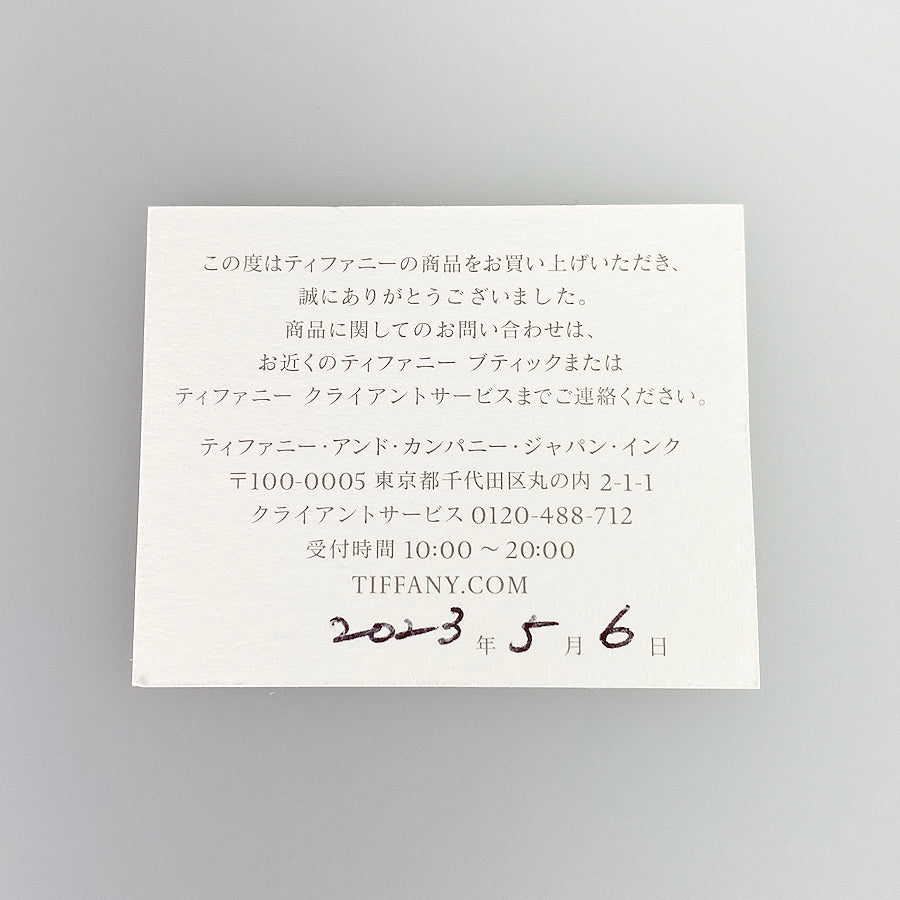 この度はティファニーの商品をお買い上げいただき、
誠にありがとうございました。
商品に関してのお問い合わせは、
お近くのティファニー ブティックまたは
ティファニー クライアントサービスまでご連絡ください。
ティファニー・アンド・カンパニー・ジャパン・インク
〒100-0005 東京都千代田区丸の内 2-1-1
クライアントサービス 0120-488-712
受付時間 10:00 ～ 20:00
TIFFANY.COM
2023 年 5 月 6 日